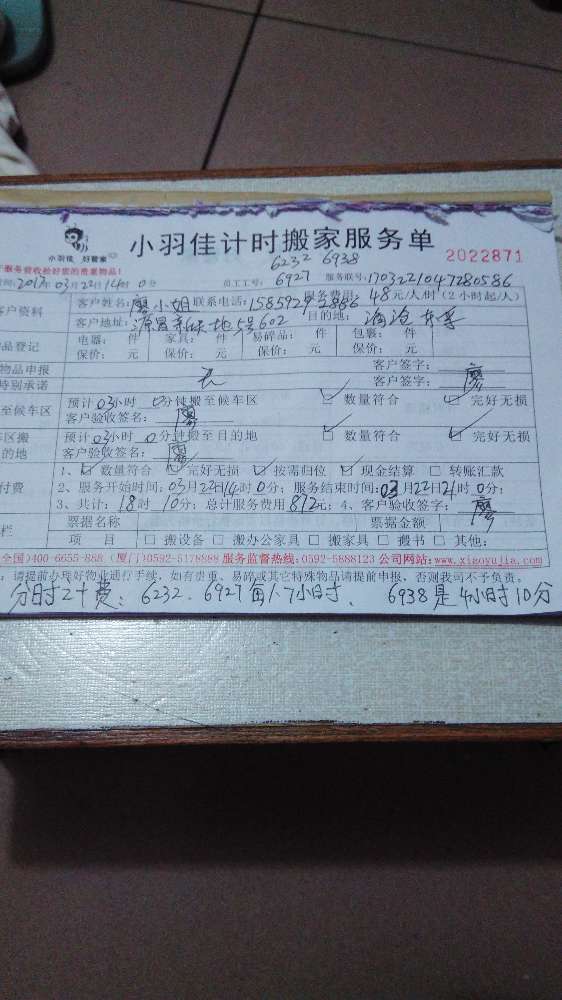 小羽佳 好管家
小羽佳计时搬家服务单
2022871
服务验收给好您的贵重物品!
6232 6938
时间:2017年03月22日14时0分 员工工号: 6927 服务联号:1703221047280586
客户资料
客户姓名:廖小姐 联系电话: 服务费用 48元/人/时(2小时起/人)
客户地址: 5号602 目的地:
品登记
电器: 件 家具: 件 易碎品: 件 包裹: 件
保价: 元 保价: 元 保价: 元 保价: 元
物品申报
特别承诺
无
客户签字:
客户签字: 廖
至候车区
预计03小时 0分钟搬至候车区 数量符合 完好无损
客户验收签名: 廖
区搬
的地
预计03小时 0分钟搬至目的地 数量符合 完好无损
客户验收签名: 廖
付费
1、 数量符合 完好无损 按需归位 现金结算 转账汇款
2、服务开始时间:03月22日14时0分; 服务结束时间:03月22日21时0分;
3、共计:18时10分; 总计服务费用872元; 4、客户验收签字: 廖
栏
票据名称 票据金额
项 目 搬设备 搬办公家具 搬家具 搬书 其他:
全国)400-6655-888 (厦门)0592-5178888 服务监督热线:0592-5888123 公司网站:www.xiaoyujia.com
,请提前办理好物业进行手续,如有贵重、易碎或其它特殊物品请提前申报,否则我司不予负责。
分时工十费: 6232、6927每人7小时、 6938是4小时10分